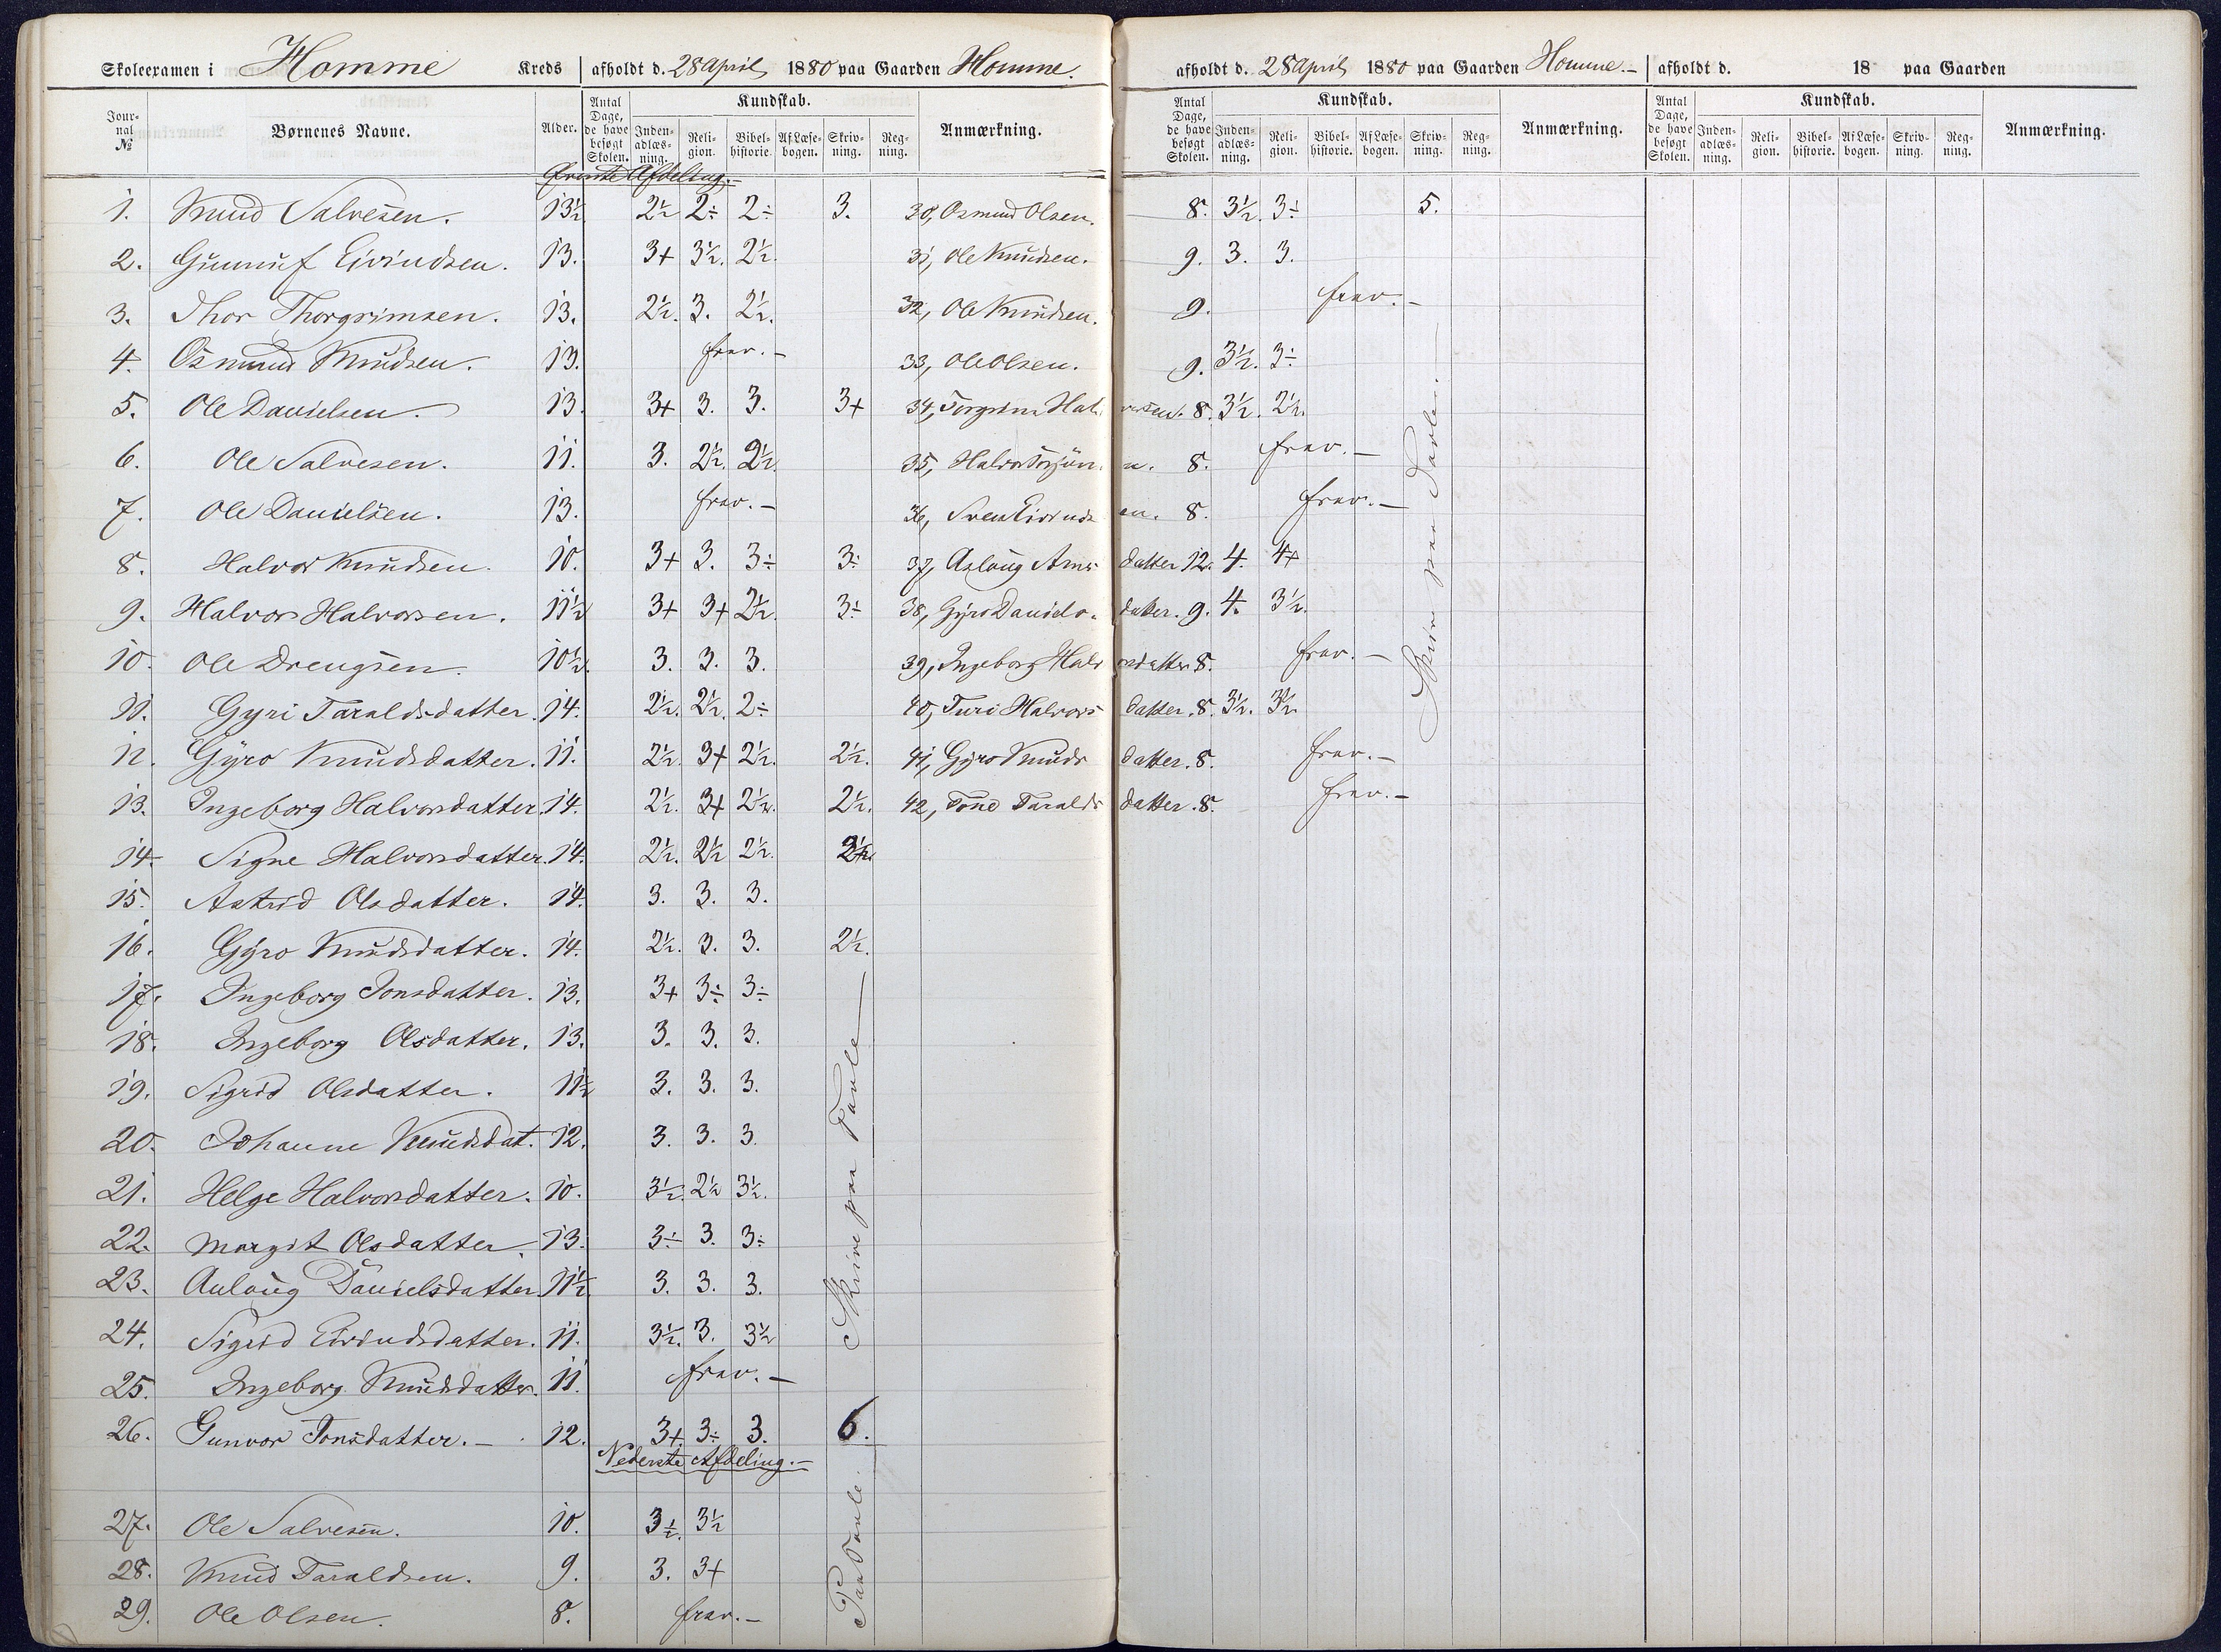 Skoleexamen i Homme Kreds afholdt d. 28 April 1880 paa Gaarden Homme.
Jour-nal № Børnenes Navne. Alder. Antal Dage, de have besøgt Skolen. Kundskab. Inden-adlæs-ning. Reli-gion. Bibel-historie. Af Læse-bogen. Skriv-ning. Reg-ning. Anmærkning.
Øverste Afdeling.-
1. Knud Salvesen. 13½ 2½ 2÷ 2÷ 3.
2. Gunnuf Eivindsen. 13. 3+ 3½. 2½.
3. Thor Thorgrimsen. 13. 2½. 3. 2½.
4. Osmund Knudsen. 13. frav.-
5. Ole Danielsen. 13 3+ 3. 3. 3+
6. Ole Salvesen. 11. 3. 2½. 2½.
7. Ole Danielsen. 13. frav.-
8. Halvor Knudsen. 10. 3+ 3. 3÷ 3÷
9. Halvor Halvorsen. 11½ 3+ 3+ 2½. 3÷
10. Ole Drengsen. 10½. 3. 3. 3.
11. Gyri Taraldsdatter. 14. 2½. 2½. 2÷
12. Gyro Knudsdatter. 11. 2½. 3+ 2½. 2½.
13. Ingeborg Halvorsdatter. 14. 2½. 3+ 2½. 2½.
14. Signe Halvorsdatter. 14. 2½. 2½ 2½. 2½
15. Astrid Olsdatter. 14. 3. 3. 3.
16. Gyro Knudsdatter. 14. 2½. 3. 3. 2½.
17. Ingeborg Jonsdatter. 13. 3+ 3÷ 3÷
18. Ingeborg Olsdatter. 13. 3. 3. 3.
19. Sigrid Olsdatter. 11½ 3. 3. 3.
20. Johanne Knudsdat. 12. 3. 3. 3.
21. Helge Halvorsdatter. 10. 3½. 2½ 3½.
22. Margit Olsdatter. 13. 3÷ 3. 3÷
23. Aulaug Danielsdatter. 11½ 3. 3. 3.
24. Sigrid Eivindsdatter. 11. 3½. 3. 3½
25. Ingeborg Knudsdatter. 11. frav.-
26. Gunvor Tonsdatter.- 12. 3+ 3÷ 3. 6.
Skrive paa Tavle
Nederste Afdeling.-
27. Ole Salvesen. 10. 3½. 3½
28. Knud Taraldsen. 9. 3. 3+
29. Ole Olsen. 8. frav.-
Paa Tavle.
afholdt d. 28 April 1880 paa Gaarden Homme.- afholdt d. 18 paa Gaarden
Antal Dage, de have besøgt Skolen. Kundskab. Inden-adlæs-ning. Reli-gion. Bibel-historie. Af Læse-bogen. Skriv-ning. Reg-ning. Anmærkning. Antal Dage, de have besøgt Skolen. Kundskab. Inden-adlæs-ning. Reli-gion. Bibel-historie. Af Læse-bogen. Skriv-ning. Reg-ning. Anmærkning.
30, Osmund Olsen. 8. 3½. 3÷ 5.
31, Ole Knudsen. 9. 3. 3.
32, Ole Knudsen. 9. frav.-
33, Ole Olsen. 9. 3½. 3÷
34, Torgrim Halvorsen. 8. 3½. 2½.
35, Halvor 8. frav.-
36, Sven Eivindsen. 8. frav.-
37, Aslaug datter 12. 4. 4+
38, Gyro Danielsdatter. 9. 4. 3½.
39, Ingeborg Halvorsdatter 8. frav.-
40, Turi Halvorsdatter. 8. 3½. 3½.
41, Gyro Knudsdatter. 8. frav.-
42, Tone Taraldsdatter. 8. frav.-
Skrive paa Tavle.